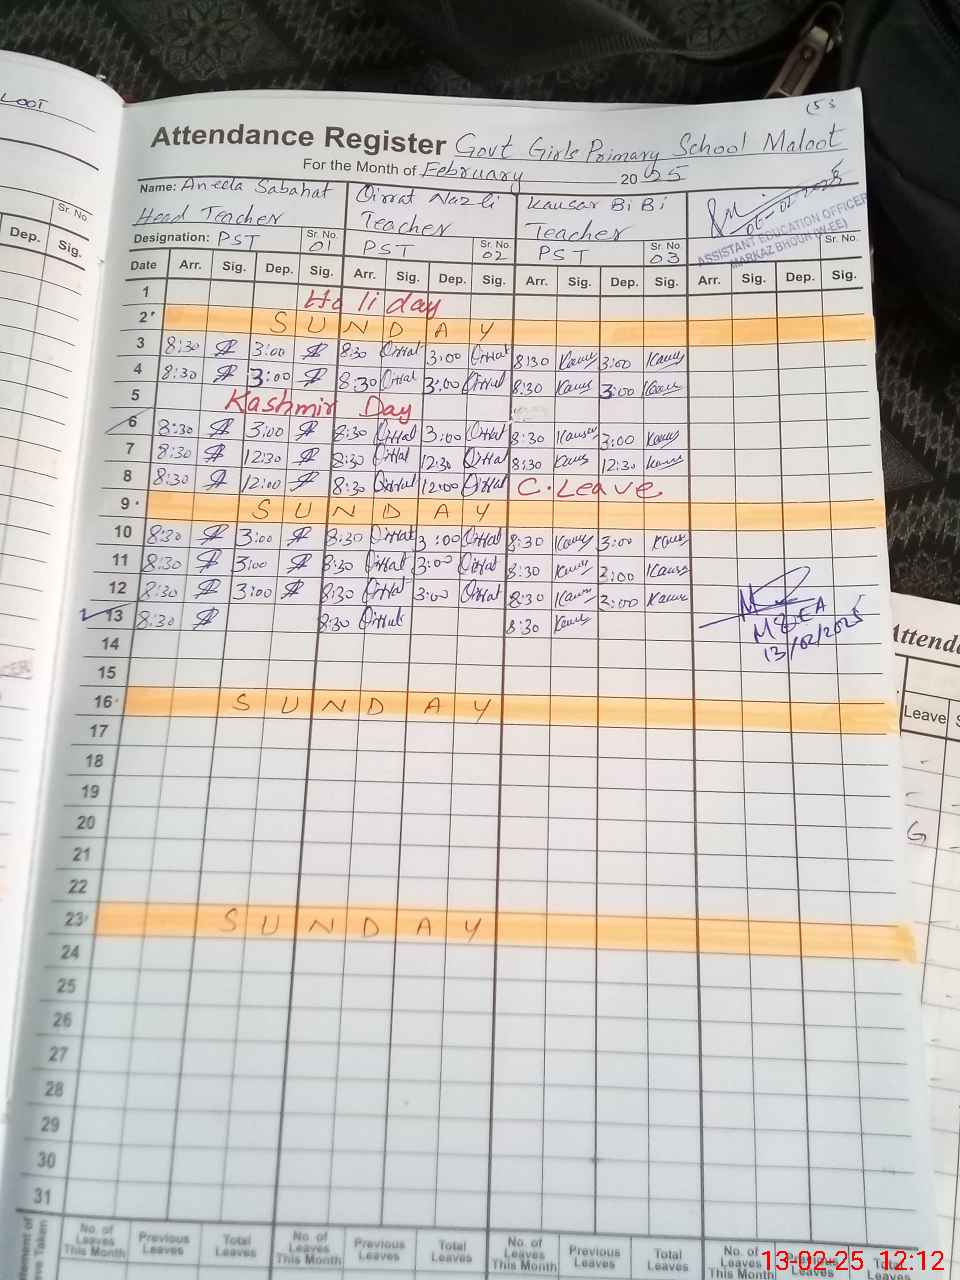 LOOT
Attendance Register Govt Girls Primary School Maloot
For the Month of February 2025
Name: Aneela Sabahat Qirrat Nazli Kausar BiBi
Head Teacher Teacher Teacher 06-02-2025
ASSISTANT EDUCATION OFFICER
MARKAZ BHOUR (W-EE)
Designation: PST Sr. No. 01 PST Sr. No. 02 PST Sr. No. 03 Sr. No.
Date Arr. Sig. Dep. Sig. Arr. Sig. Dep. Sig. Arr. Sig. Dep. Sig. Arr. Sig. Dep. Sig.
1 Holiday
2 SUNDAY
3 8:30 3:00 8:30 3:00 8:30 3:00
4 8:30 3:00 8:30 3:00 8:30 3:00
5 Kashmir Day
6 8:30 3:00 8:30 3:00 8:30 3:00
7 8:30 12:30 8:30 12:30 8:30 12:30
8 8:30 12:00 8:30 12:00 C.Leave
9 SUNDAY
10 8:30 3:00 8:30 3:00 8:30 3:00
11 8:30 3:00 8:30 3:00 8:30 3:00
12 8:30 3:00 8:30 3:00 8:30 3:00
13 8:30 8:30 8:30
MEEA
13/02/2025
14
15
16 SUNDAY
17
18
19
20
21
22
23 SUNDAY
24
25
26
27
28
29
30
31
No. of Leaves This Month Previous Leaves Total Leaves No. of Leaves This Month Previous Leaves Total Leaves No. of Leaves This Month Previous Leaves Total Leaves No. of Leaves This Month Previous Leaves Total Leaves
Sr. No
Dep. Sig.
Attenda
Leave
G
13-02-25 12:12